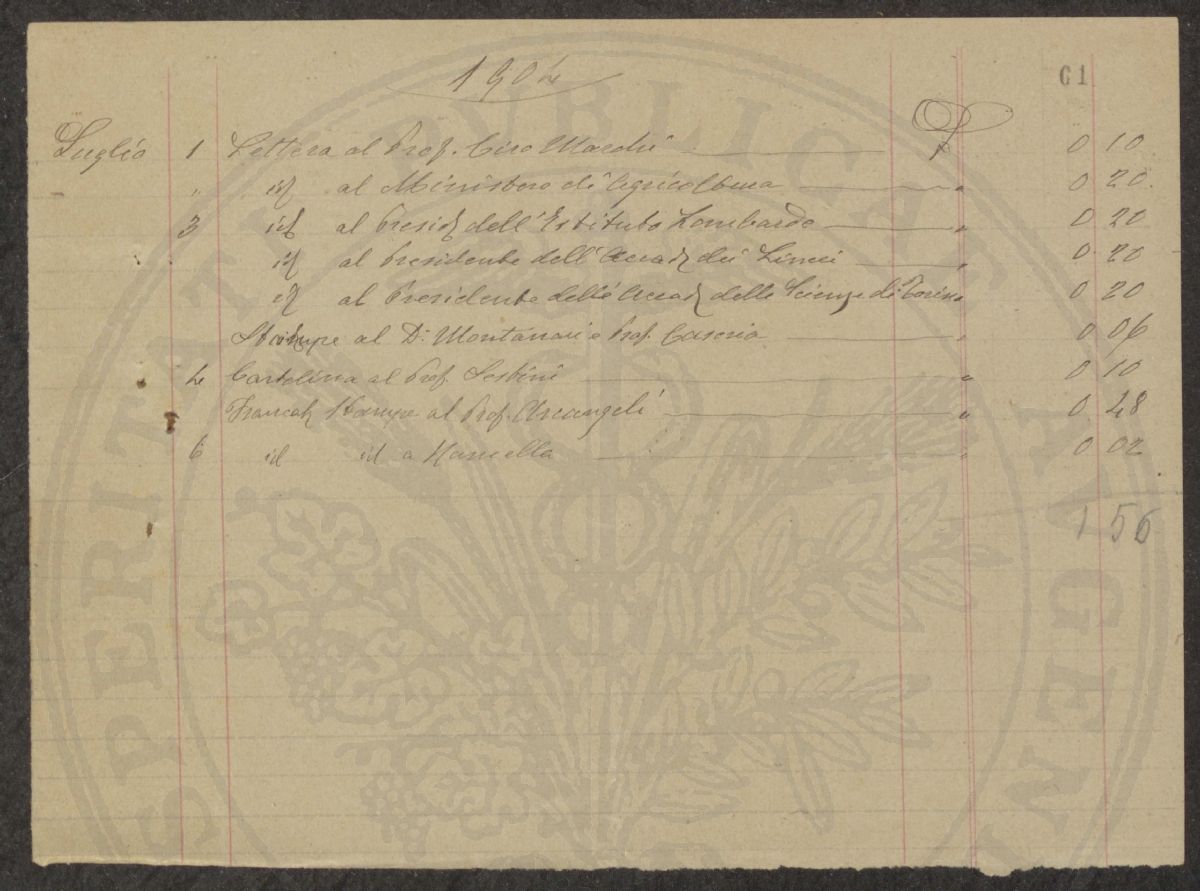 1904
61
Luglio 1 Lettera al Prof. Ciro Marchi £ 0 10
" id al Ministero di Agricoltura " 0 20
3 id al Presid dell'Istituto Lombardo " 0 20
id al Presidente dell'Accad dei Lincei " 0 20
id al Presidente delle Accad delle Scienze di Torino " 0 20
Stampe al Dr Montanari e Prof. Caseria " 0 06
4 Cartolina al Prof. Sestini " 0 10
Francat Stampe al Prof. Arcangeli " 0 48
6 id id a " 0 02
1 56
PROSPERITATI PVBLICAE AVGENDAE